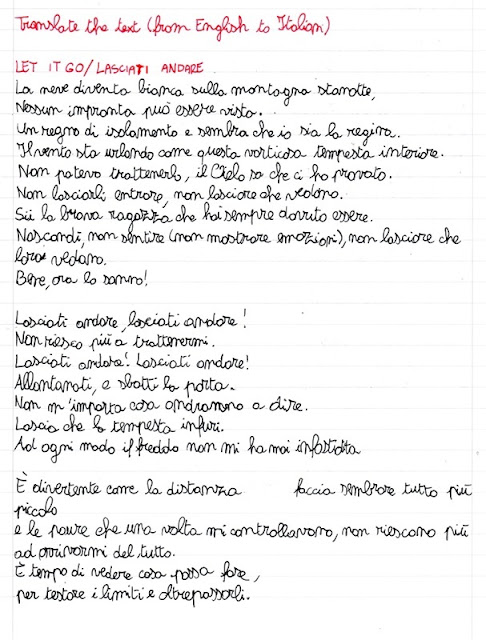 Translate the text (from English to Italian)
LET IT GO/LASCIATI ANDARE
La neve diventa bianca sulla montagna stanotte,
Nessun impronta può essere vista.
Un regno di isolamento e sembra che io sia la regina.
Il vento sta urlando come questa vorticosa tempesta interiore.
Non potevo trattenerlo, il Cielo sa che ci ho provato.
Non lasciarli entrare, non lasciare che vedano.
Sii la brava ragazza che hai sempre dovuto essere.
Nascondi, non sentire (non mostrare emozioni), non lasciare che
loro vedano.
Bene, ora lo sanno!
Lasciati andare, lasciati andare!
Non riesco più a trattenermi.
Lasciati andare! Lasciati andare!
Allontanati, e sbatti la porta.
Non m'importa cosa andranno a dire.
Lascia che la tempesta infuri.
Ad ogni modo il freddo non mi ha mai infastidita
È divertente come la distanza faccia sembrare tutto più
piccolo
e le paure che una volta mi controllavano, non riescono più
ad arrivarmi del tutto.
È tempo di vedere cosa possa fare,
per testare i limiti e oltrepassarli.